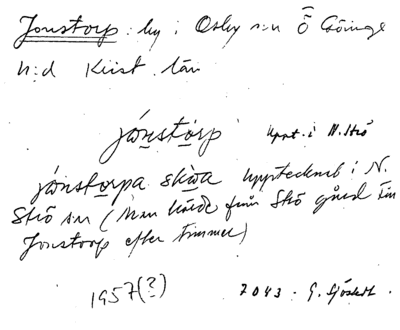 Jonstorp: by i Osby sn Ö Göinge
h:d Krist. län
jónstòrp uppt. i N. Strö
jónstorpa skòa upptecknat i N.
Strö sn (Man körde från Strö gård till
Jonstorp efter timmer)
1957(?) 2043. G. Sjöstedt.